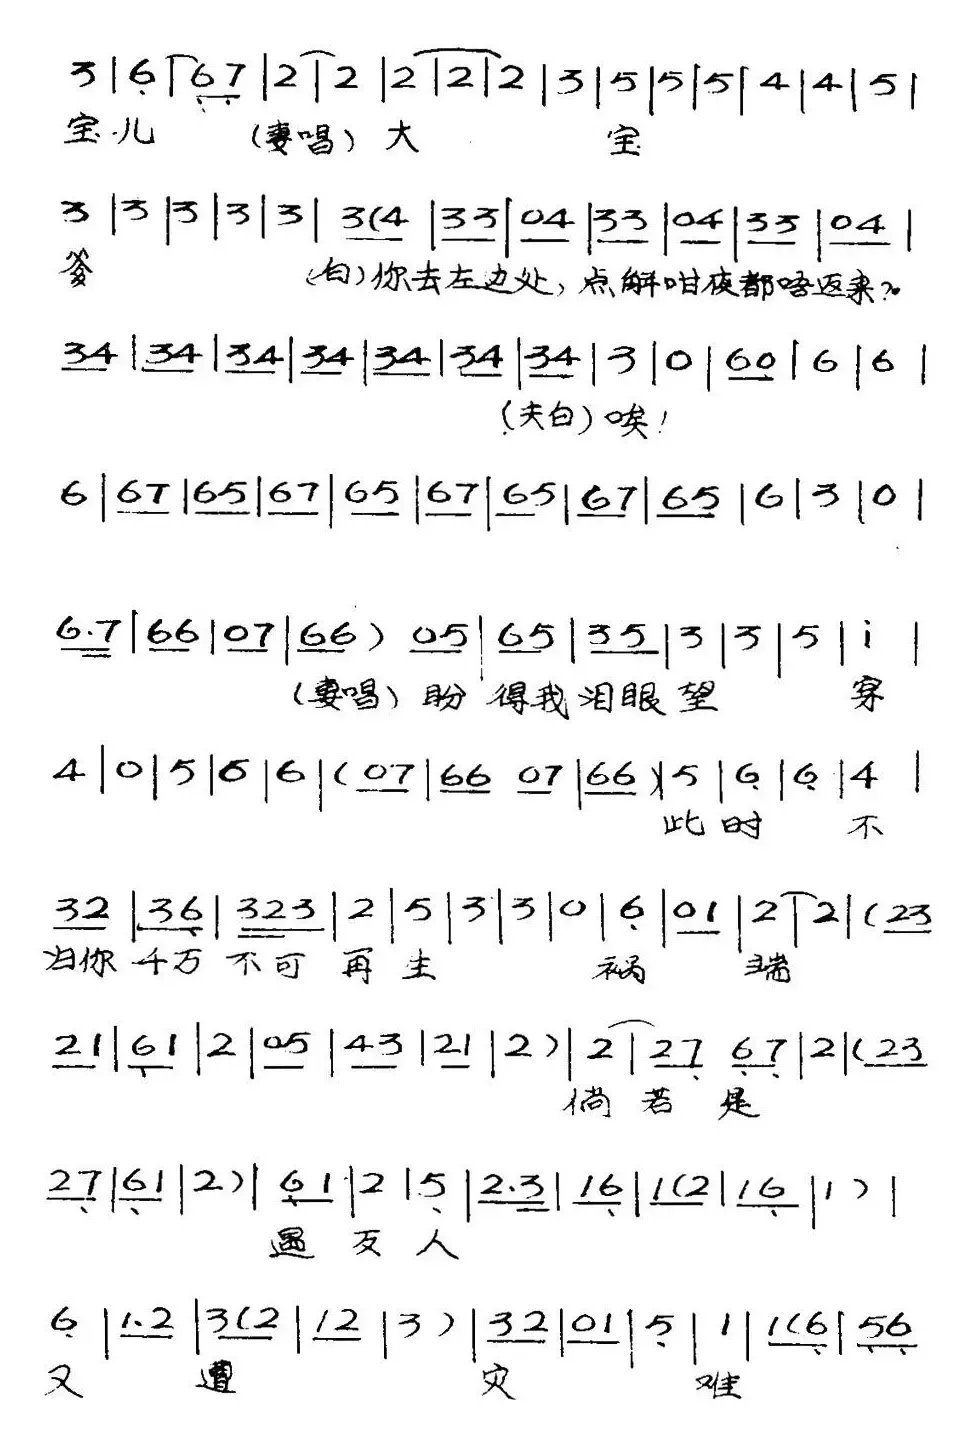 3 | 6̣ | 6̣7̣ | 2 | 2 | 2 | 2 | 2 | 3 | 5 | 5 | 5 | 4 | 4 | 5 |
宝儿 (妻唱) 大 宝
3 | 3 | 3 | 3 | 3 | 3(4 | 33 | 04 | 33 | 04 | 33 | 04 |
爹 (白) 你去左边处, 点解咁夜都唔返来?
34 | 34 | 34 | 34 | 34 | 34 | 34 | 3 | 0 | 60 | 6 | 6 |
(夫白) 唉!
6 | 67 | 65 | 67 | 65 | 67 | 65 | 67 | 65 | 6 | 3 | 0 |
6.7 | 66 | 07 | 66 ) 05 | 65 | 35 | 3 | 3 | 5 | i |
(妻唱) 盼 得我泪眼望 穿
4 | 0 | 5 | 6 | 6 | ( 07 | 66 07 | 66 ) | 5 | 6̣ | 6̣ | 4 |
此 时 不
32 | 36̣ | 323 | 2 | 5 | 3 | 3 | 0 | 6̣ | 01 | 2 | 2 | (23
归你 千万 不可 再 生 祸 端
21 | 6̣1 | 2 | 05 | 43 | 21 | 2 ) | 2 | 27̣ 6̣7̣ | 2 | (23
倘 若 是
27̣ | 6̣1 | 2) | 6̣1 | 2 | 5̣ | 2.3 | 16̣ | 1(2 | 16̣ | 1 ) |
遇 友 人
6̣ | 1.2 | 3(2 | 12 | 3 ) | 32 | 01 | 5̣ | 1 | 1(6̣ | 5̣6̣
又 遭 灾 难